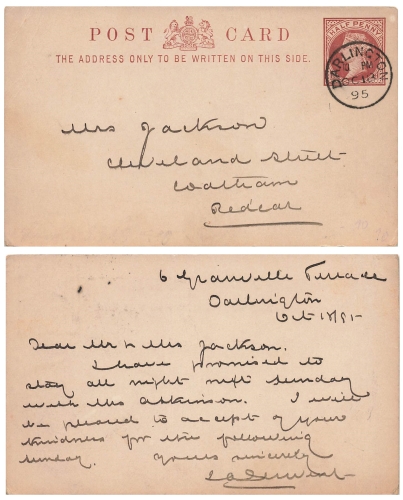 POST CARD
THE ADDRESS ONLY TO BE WRITTEN ON THIS SIDE.
HALF PENNY
DARLINGTON
OC 18
95
Mrs Jackson
Cleveland Street
Coatham
Redcar
6 Granville Terrace
Darlington
Oct 18/95
Dear Mr & Mrs Jackson.
I have promised to
stay all night next Sunday
with Mrs Atkinson. I will
be pleased to accept of your
kindness for the following
Sunday. Yours sincerely